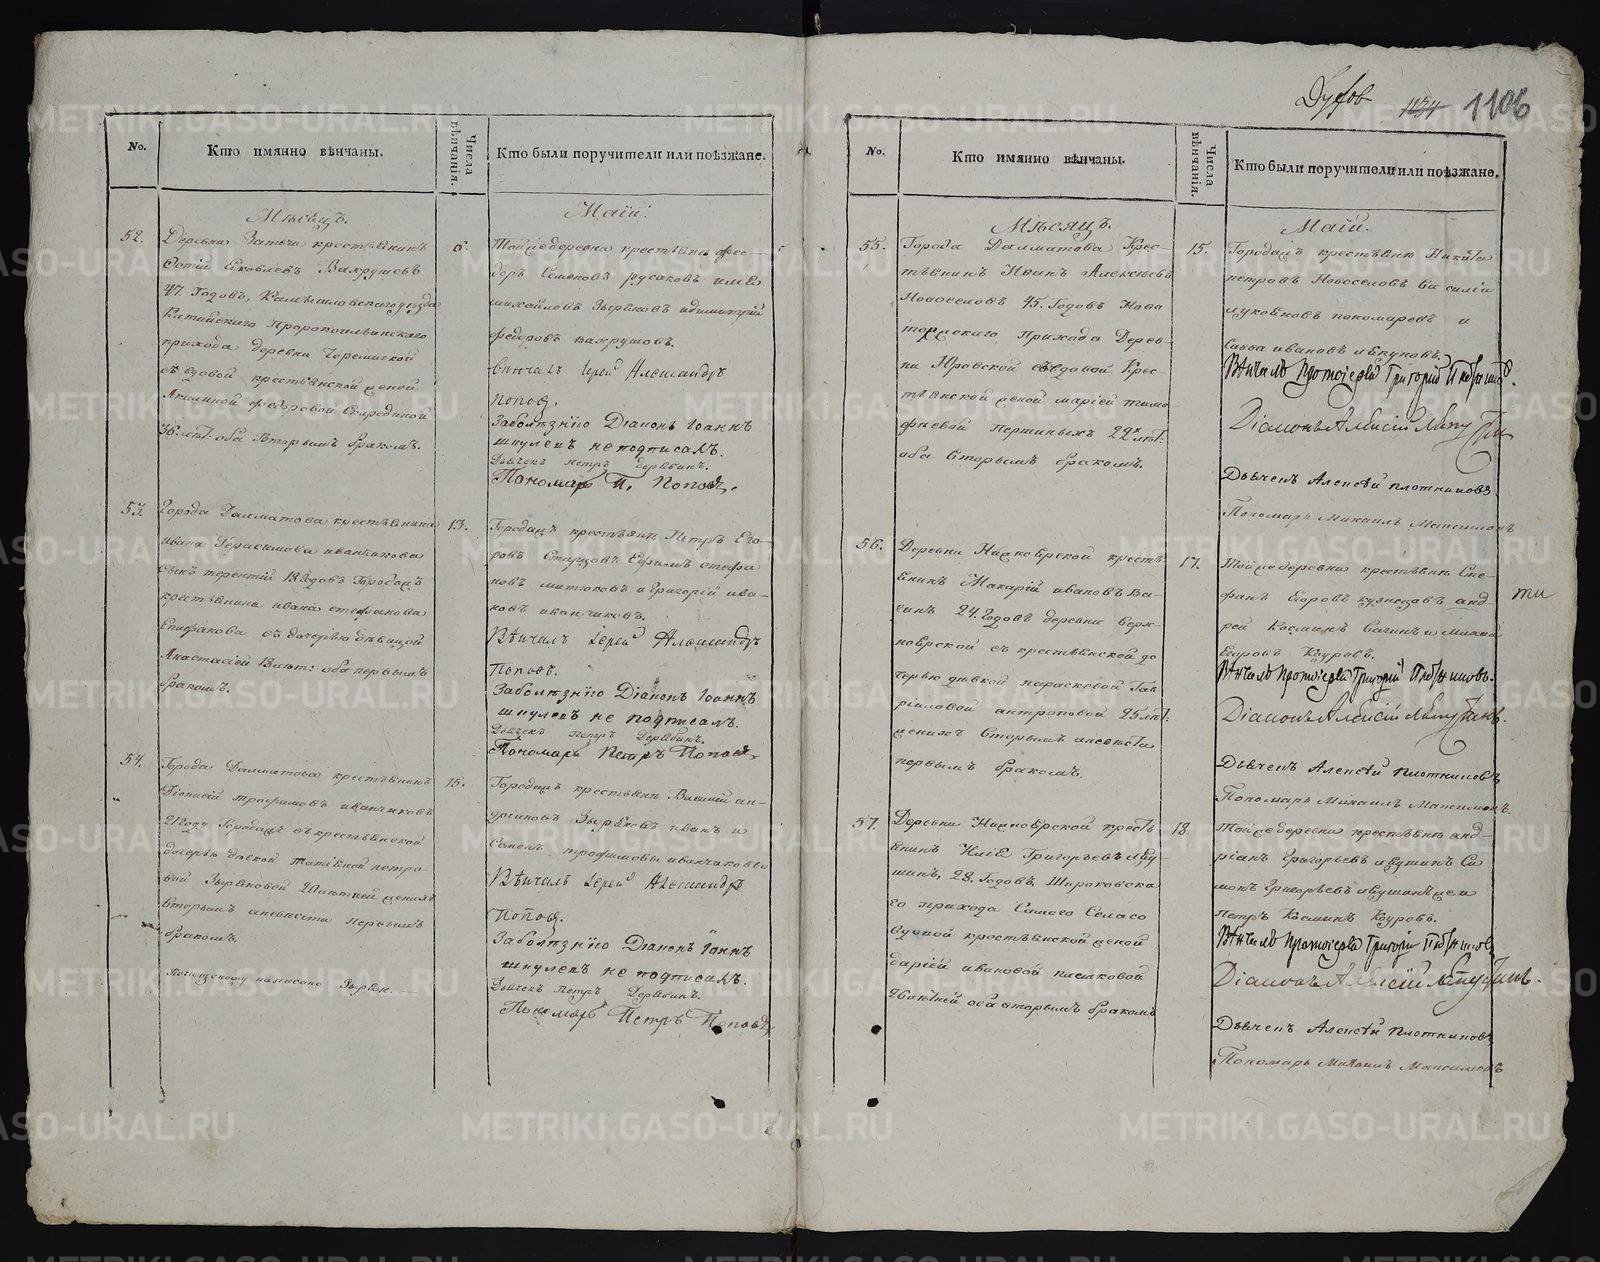 Духов
1134 1106
No.
Кто имянно вѣнчаны.
Числа вѣнчанія.
Кто были поручители или поѣзжане.
Мѣсяцъ.
Маїй.
52.
Деревни Затечи крестьянинъ
Фотій Яковлевъ Вахрушевъ
47. Годовъ, Камышловскаго уезда
прихода деревни
съ вдовой крестьянской женой
Акилиной федоровой
36 лѣтъ оба Вторымъ бракомъ.
6.
Той же деревни крестьяне фео-
доръ Семеновъ русаковъ илья
михайловъ Зырянов идимитрий
федоровъ вахрушовъ.
вѣнчалъ Іерей Александръ
поповъ.
Заболѣзнію Діаконъ Іоаннъ
шкулевъ не подписалъ.
Дьячекъ петръ дерябинъ.
Пономарь П. Поповъ.
53.
Города Далматова крестьянина
ивана Герасимова иванчикова
сынъ терентий 18 годовъ Городецъ
крестьянина ивана стефанова
Епифанова съ дочерью дѣвицой
Анастасіей 18 лѣт: оба первымъ
бракомъ.
13.
Городецъ крестьяне Петръ Его-
ровъ Старцовъ Ефимъ стефа
новъ митюковъ и Григорій ива-
новъ иванчиковъ.
Вѣнчалъ Іерей Александръ
Поповъ.
Заболѣзнію Діаконъ Іоаннъ
шкулевъ не подписалъ.
Дьячекъ Петръ Дерябинъ.
Пономарь Петръ Поповъ.
54.
Города Далматова крестьянинъ
Діонисій трофимовъ иванчиковъ
21 годъ Городецъ съ крестьянской
дочерью дѣвкой татіяной петро-
вой Зыряновой 20 лѣтней женихъ
вторымъ аневѣста первымъ
бракомъ.
15.
Городецъ крестьяне Василий ан-
дріяновъ Зыряновъ иванъ и
Семенъ трофимовы иванчиковы
Вѣнчалъ Іерей Александръ
Поповъ.
Заболѣзнію Діаконъ Іоаннъ
шкулевъ не подписалъ.
Дьячекъ Петръ Дерябинъ.
Пономарь Петръ Поповъ
Почищеному написано Зырян.
No.
Кто имянно вѣнчаны.
Числа вѣнчанія.
Кто были поручители или поѣзжане.
Мѣсяцъ.
Маїй.
55.
Города Далматова Крес-
тьянинъ Иванъ Алексѣевъ
Новоселовъ 45. Годовъ Ново
торжскаго Прихода Дерев-
ни Юровской съвдовой Крес-
тьянской женой маріей тимо-
феевой Першиныхъ 29 лѣт:
оба Вторымъ бракомъ.
15.
Городецъ крестьяне Никита
петровъ Новоселовъ Василій
лукояновъ пономаревъ и
Савва ивановъ
Вѣнчалъ Протоіерей Григорий
Діаконъ Алексій Лапутинъ
Дьячекъ Алексѣй плотниковъ.
Пономарь Михаилъ Максимовъ
56.
Деревни Нижнеярской кресть-
янинъ Макарій ивановъ Ва-
гинъ 24. Годовъ деревни Верх-
ноярской съ крестьянской до
черью дѣвкой параскевой Гав
ріиловой антроповой 25 лѣт:
женихъ Вторымъ аневѣста
первымъ бракомъ.
17.
Той же деревни крестьяне Сте-
фанъ Егоровъ кузнецовъ анд-
рей Космин Вагинъ и михай
Егоровъ Кауровъ.
ти
Вѣнчалъ Протоіерей Григорий
Діаконъ Алексій Лапутинъ.
Дьячекъ Алексѣй плотниковъ
Пономарь Михаилъ Максимовъ.
57.
Деревни Нижнеярской кресть
янинъ Илія Григорьевъ
28. Годовъ, Широковска
го прихода Самого Села со
вдовой крестьянской женой
дарией ивановой
26 лѣтней оба вторымъ бракомъ
18.
Той же деревни крестьяне анд-
ріанъ Григорьевъ Си
монъ Григорьевъ
петръ Косминъ Кауровъ.
Вѣнчалъ Протоіерей Григорий
Діаконъ Алексій Лапутинъ.
Дьячекъ Алексѣй плотниковъ
Пономарь Михаилъ Максимовъ
METRIKI.GASO-URAL.RU